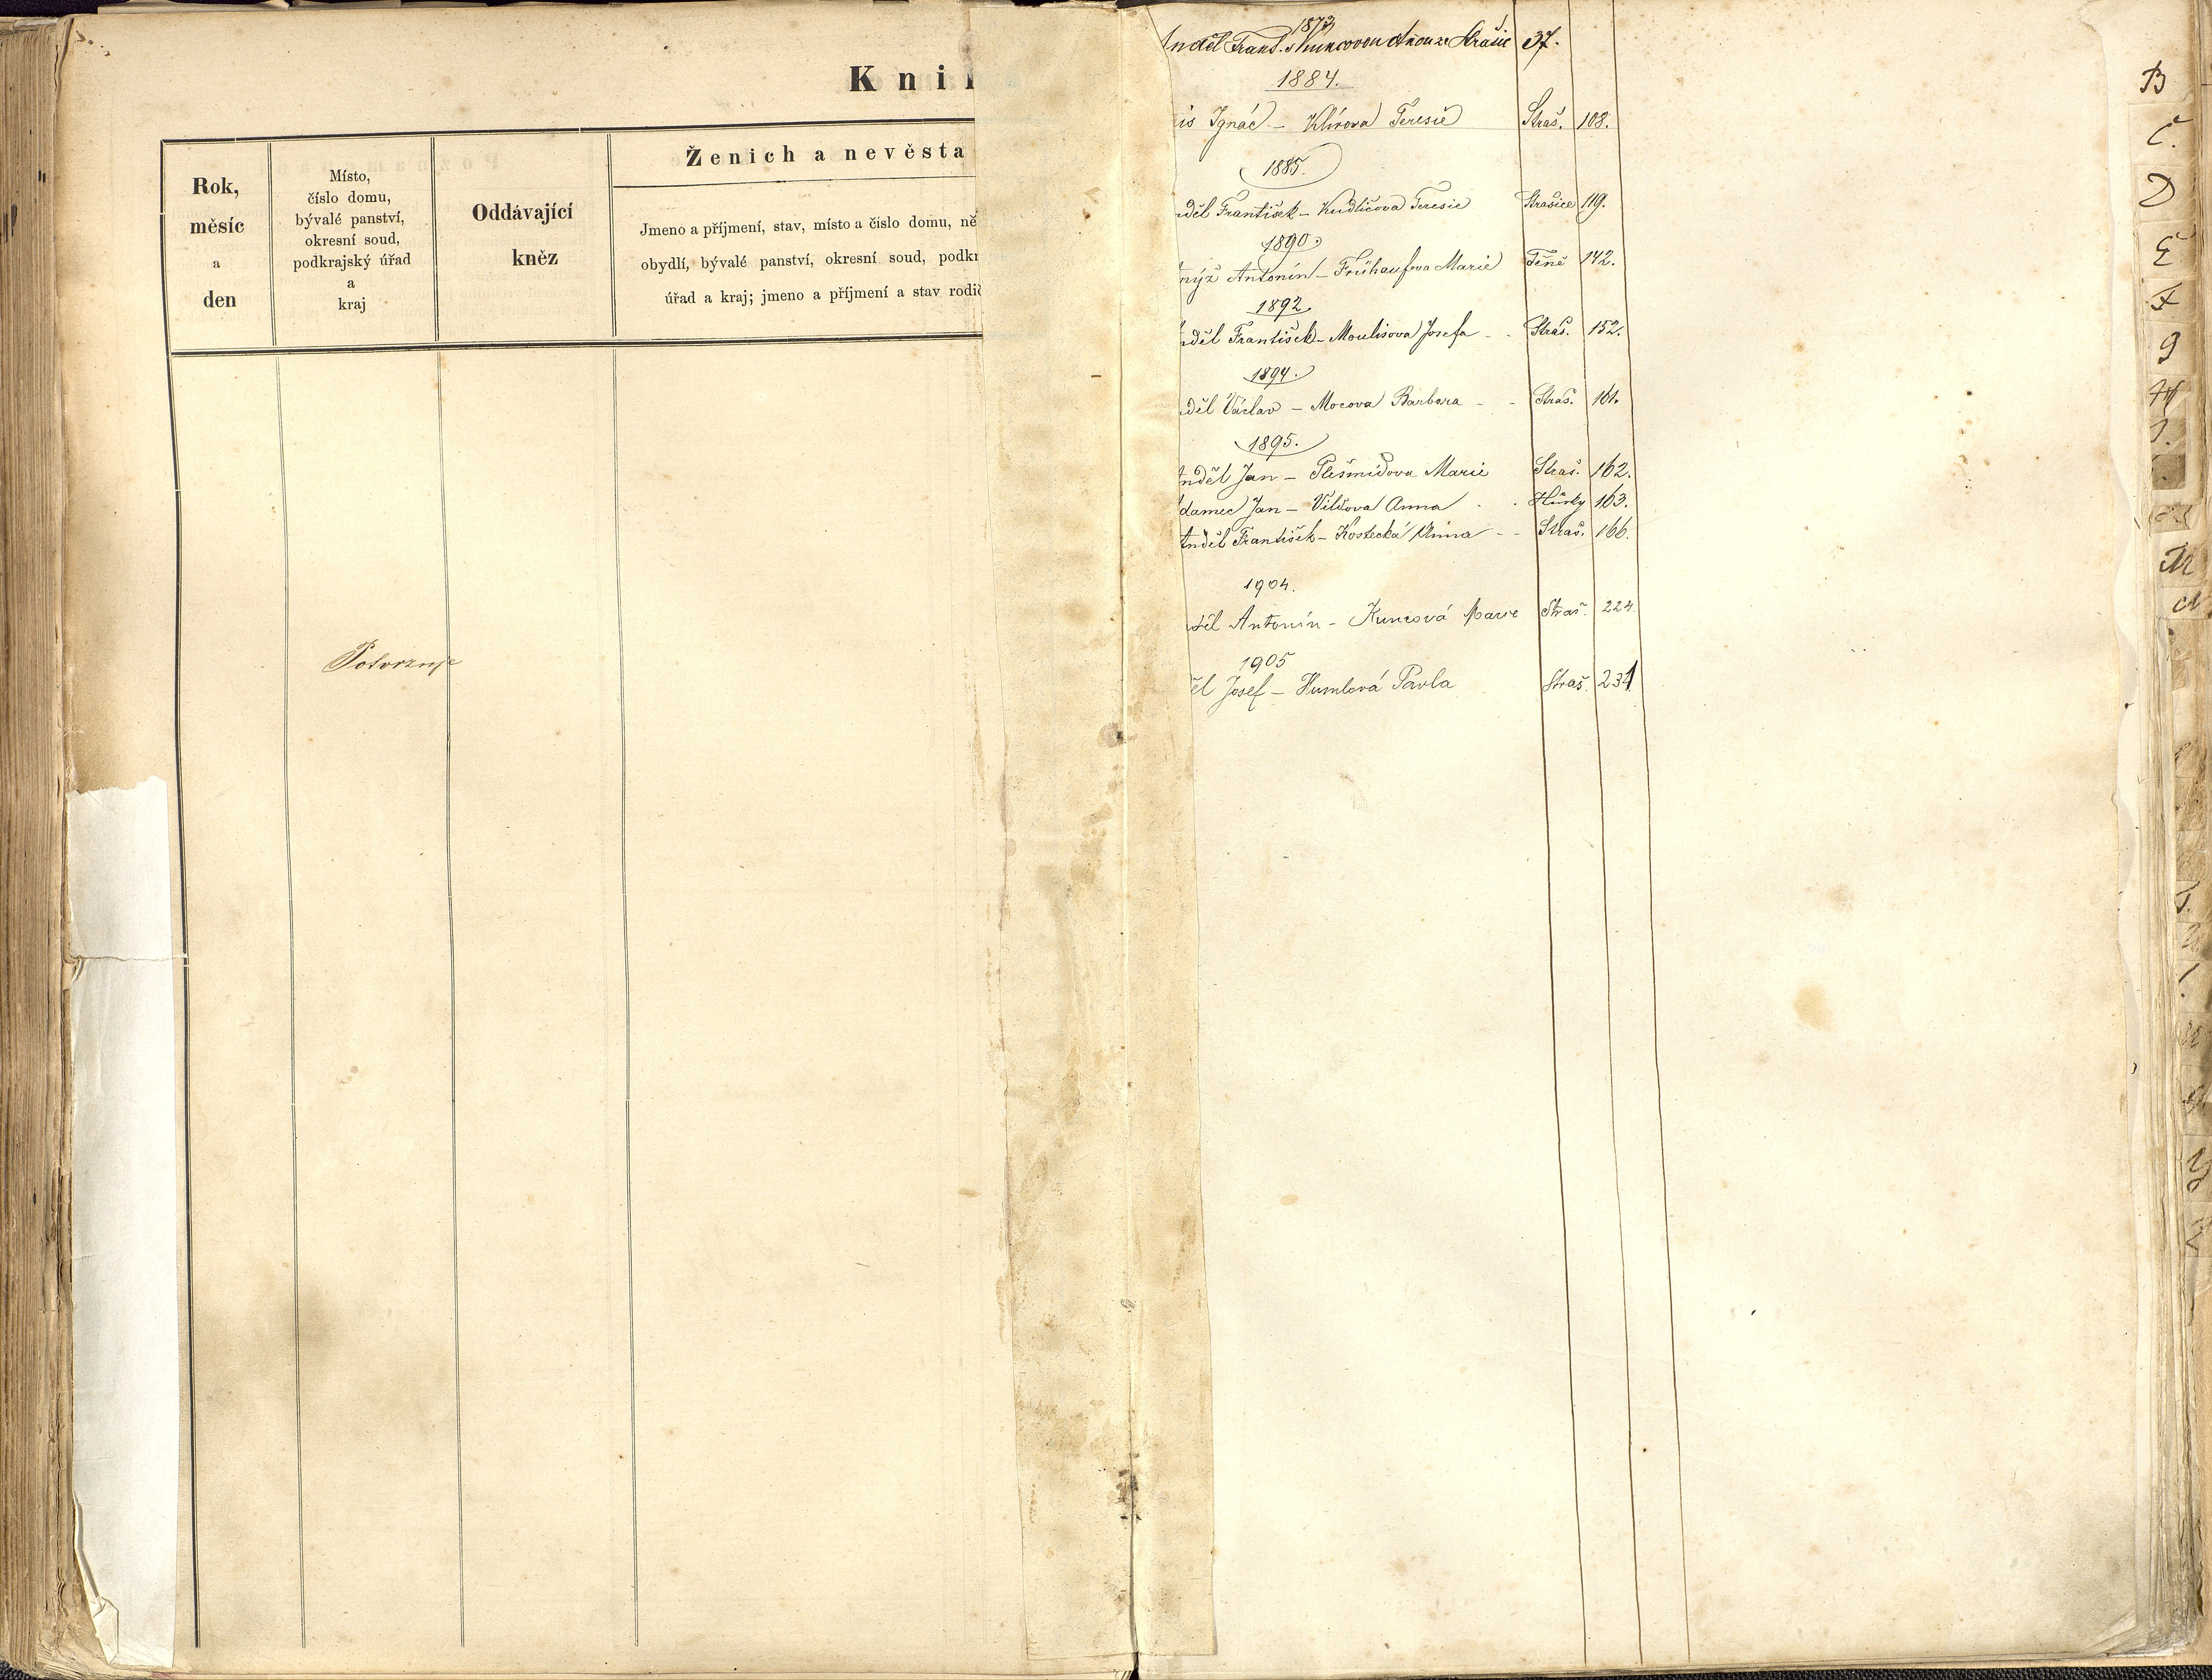 Kni
Rok,
měsíc
a
den
Místo,
číslo domu,
bývalé panství,
okresní soud,
podkrajský úřad
a
kraj
Oddávající
kněz
Ženich a nevěsta
Jmeno a příjmení, stav, místo a čislo domu, ně
obydlí, bývalé panství, okresní soud, podkr
úřad a kraj; jmeno a příjmení a stav rodič
Potvrzuje
1873
Anděl Frant. s Kuncovou Annou ze Strašic 37.
1884.
is Ignác – Klírova Teresie Straš. 108.
1885.
děl František – Kudličova Teresie Strašice 119.
1890.
nýž Antonín – Frühaufova Marie Těně 142.
1892
děl František – Moulisova Josefa - - Straš. 152.
1894.
děl Václav – Mocova Barbora - - Straš. 161.
1895.
nděl Jan – Plešmídova Marie Straš. 162.
damec Jan – Vildova Anna - . Hůrky 163.
Anděl František – Kostecká Anna - - Straš. 166.
1904.
děl Antonín – Kuncová Marie Straš. 224
1905
ěl Josef – Humlová Pavla Straš. 231
B
Č.
D
E
F
G
H
M
N